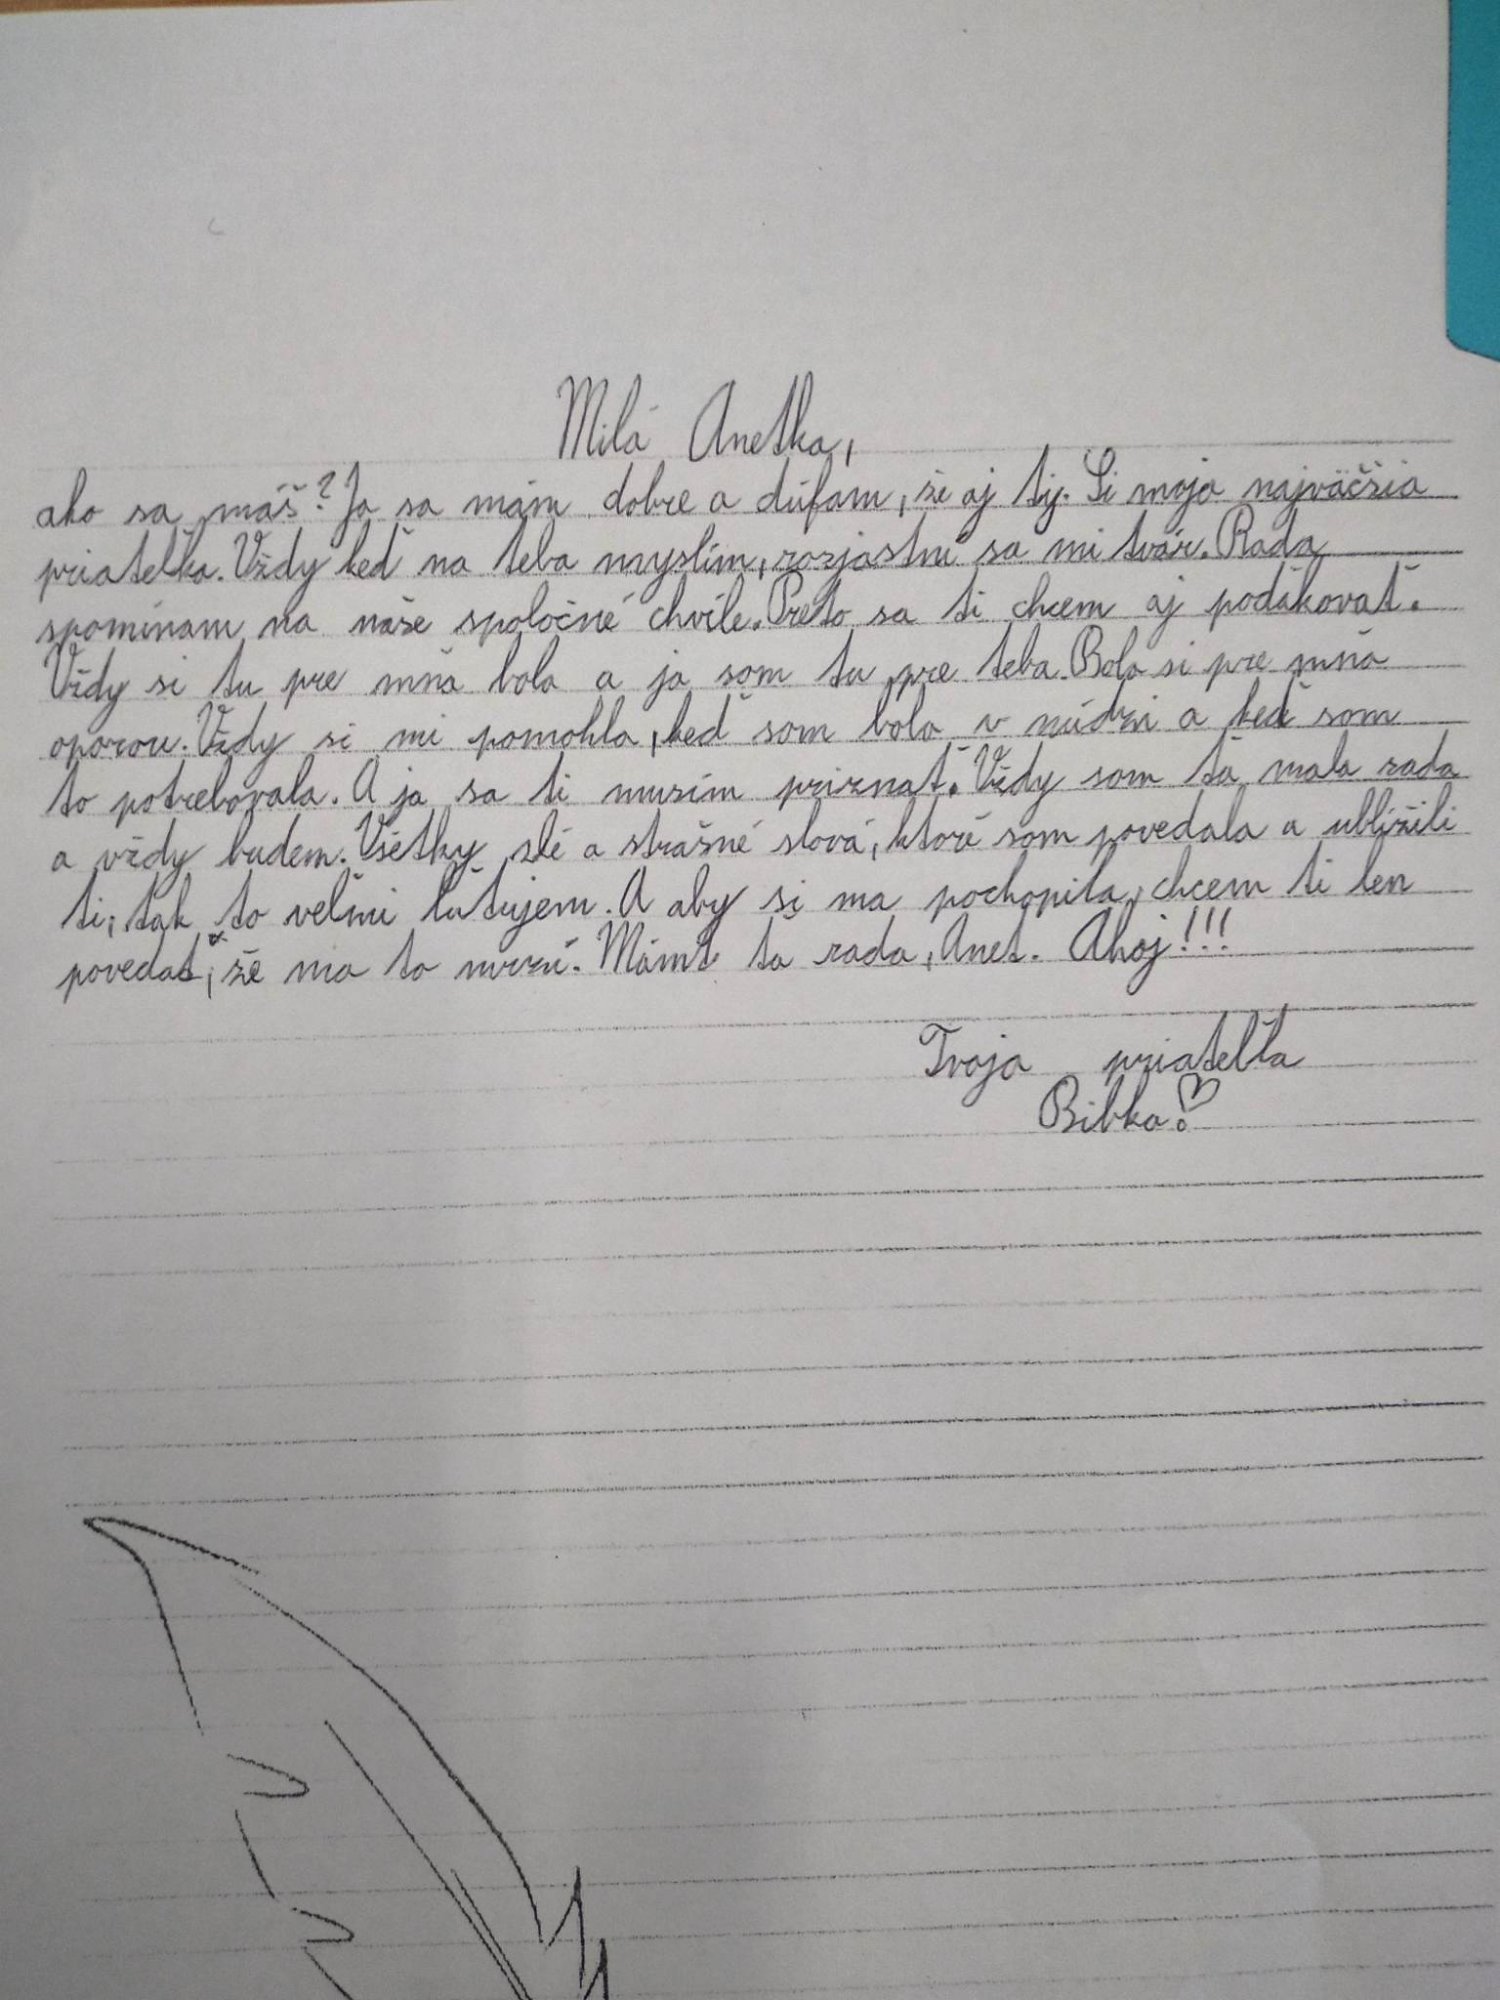 Milá Anetka,
ako sa máš? Ja sa mám dobre a dúfam, že aj ty. Si moja najväčšia
priateľka. Vždy keď na teba myslím, rozjastní sa mi tvár. Rada
spomínam na naše spoločné chvíle. Preto sa ti chcem aj poďakovať.
Vždy si tu pre mňa bola a ja som tu pre teba. Bola si pre mňa
oporou. Vždy si mi pomohla, keď som bola v núdzi a keď som
to potrebovala. A ja sa ti musím priznať. Vždy som ťa mala rada
a vždy budem. Všetky zlé a strašné slová, ktoré som povedala a ublížili
ti, tak to veľmi ľutujem. A aby si ma pochopila, chcem ti len
povedať, že ma to mrzí. Mám ťa rada, Anet. Ahoj!!!
Tvoja priateľka
Bibka